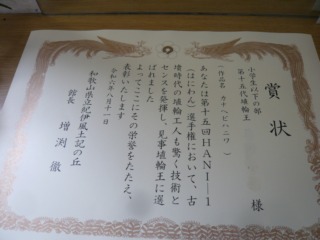 賞状
小学生以下の部
第十五代埴輪王
様
(作品名 カナヘビハニワ)
あなたは第十五回HANI―1
(はにわん)選手権において、古
墳時代の埴輪工人も驚く技術と
センスを発揮し、見事埴輪王に選
ばれました
よってここにその栄誉をたたえ、
表彰いたします
令和六年八月十一日
和歌山県立紀伊風土記の丘
館長 増渕 徹